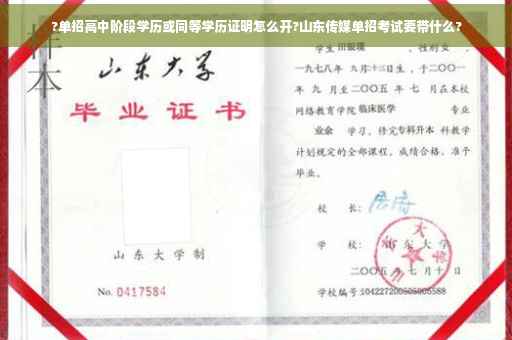 ?单招高中阶段学历或同等学历证明怎么开?山东传媒单招考试要带什么?
样本
山东大学
毕业证书
山东大学制
No. 0417584
学生 田银瑛 ，性别女 ，
一九七八年 九月十三日生，于二〇〇一
年 九 月至二〇〇五 年 七 月在本校
网络教育学院 临床医学 专业
业余 学习，修完专科升本 科教学
计划规定的全部课程，成绩合格，准予
毕业。
校 长:
学 校: 山东大学
二〇〇五 年 七 月 十 日
学校编号: